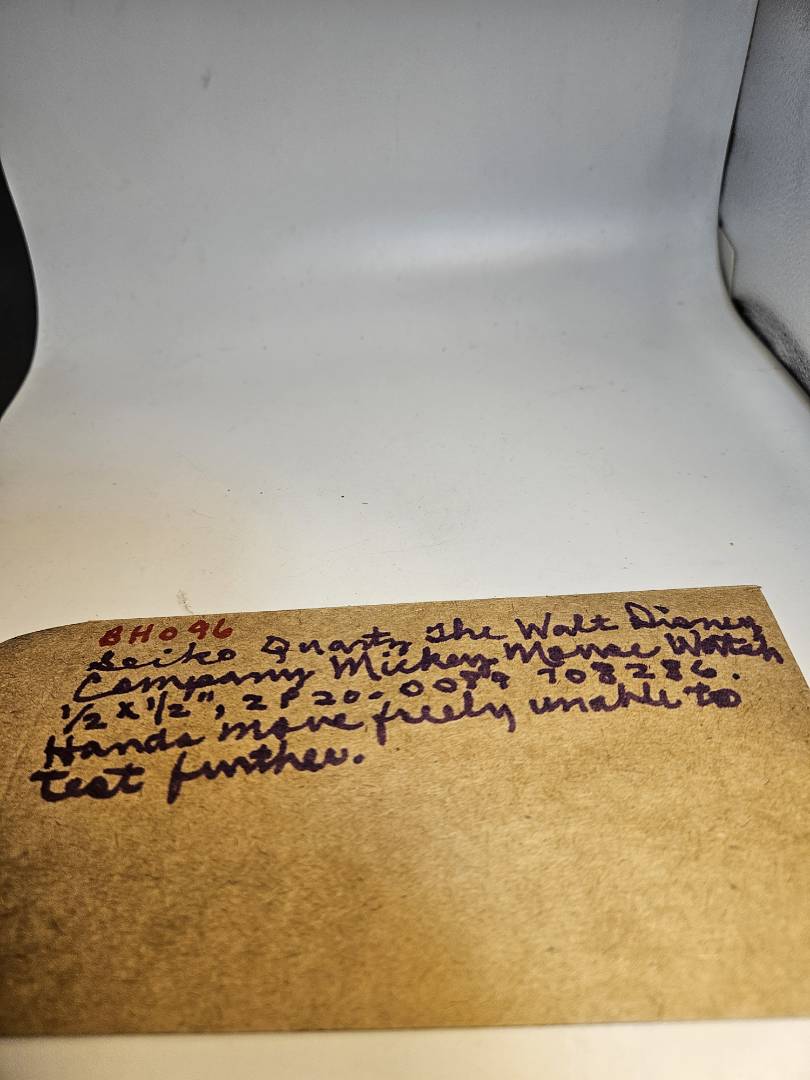 BH096
Seiko Quartz The Walt Disney
Company Mickey Mouse Watch
1/2 x 1/2", 2P20-0089 708286.
Hands move freely unable to
test further.